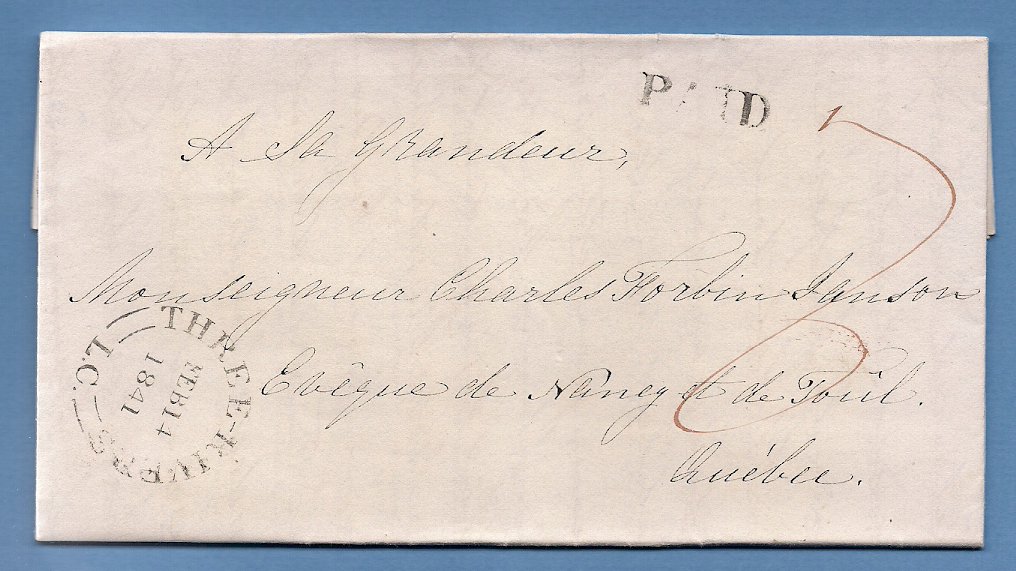 PAID
A Sa Grandeur,
Monseigneur Charles Forbin Janson
Evêque de Nancy et de Toûl.
Québec.
THREE-RIVERS
L.C.
FEB 14
1841